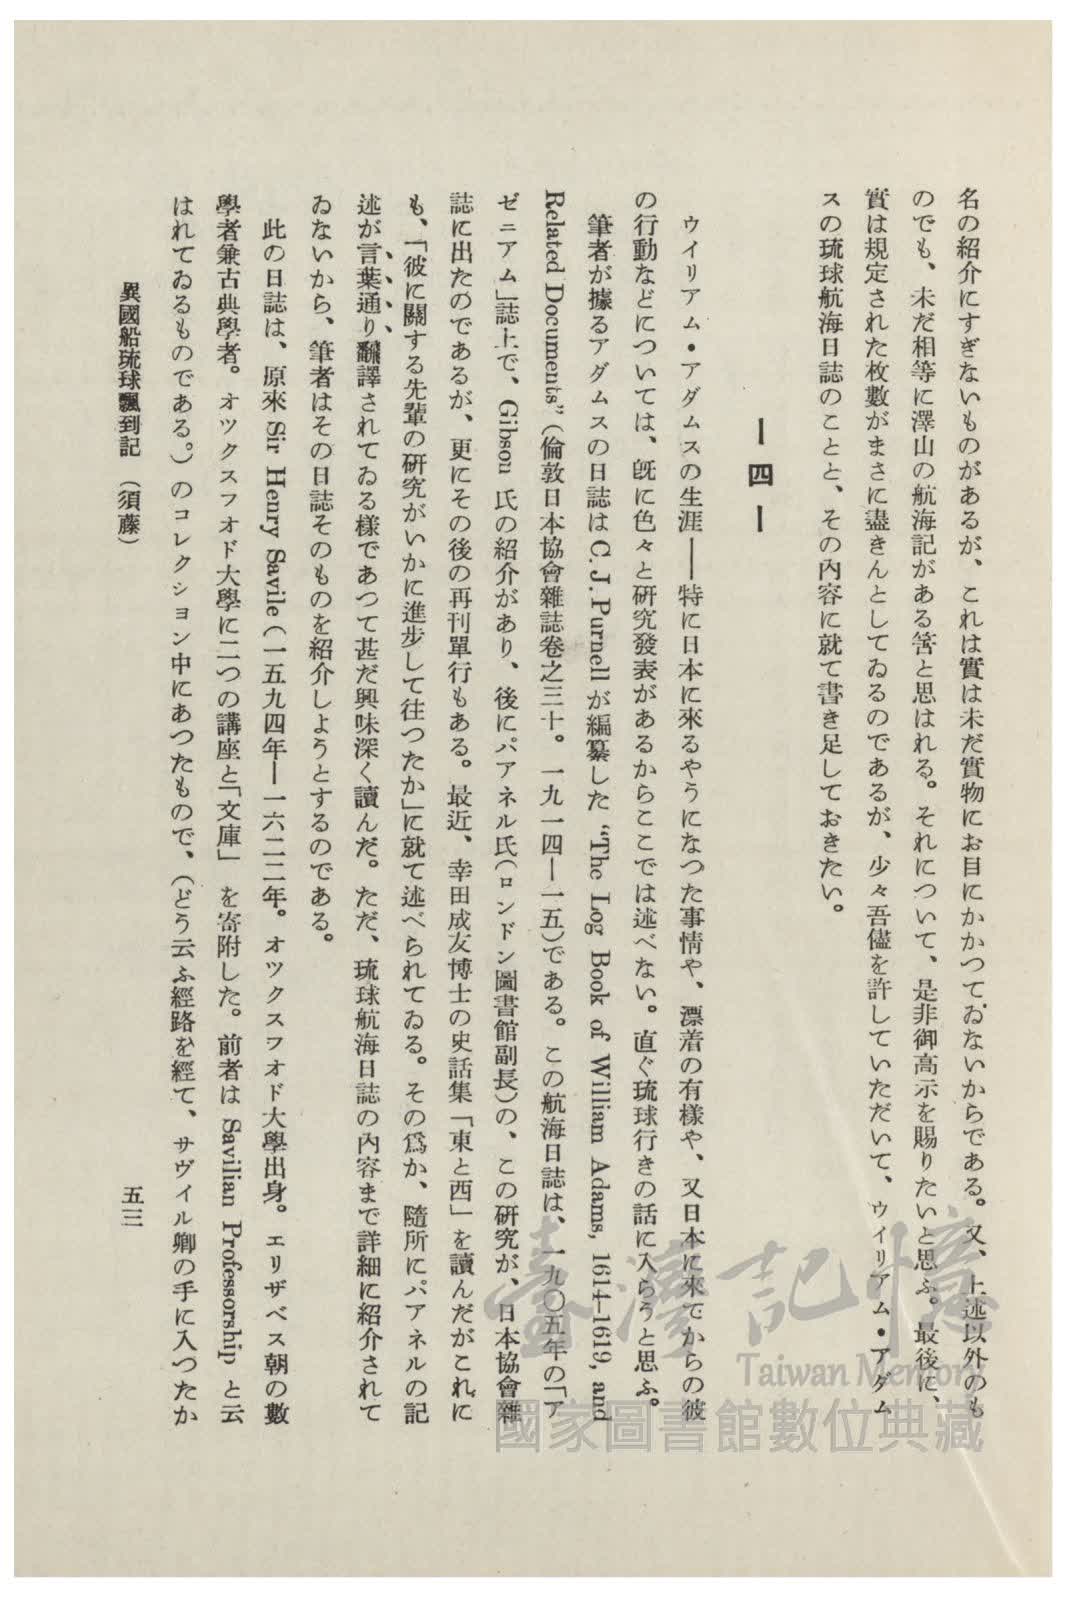 名の紹介にすぎないものがあるが、これは實は未だ實物にお目にかかつてゐないからである。又、上述以外のも
のでも、未だ相等に澤山の航海記がある筈と思はれる。それについて、是非御高示を賜りたいと思ふ。最後に、
實は規定された枚數がまさに盡きんとしてゐるのであるが、少々吾儘を許していただいて、ウイリアム・アダム
スの琉球航海日誌のことと、その內容に就て書き足しておきたい。
— 四 —
ウイリアム・アダムスの生涯——特に日本に來るやうになつた事情や、漂着の有樣や、又日本に來てからの彼
の行動などについては、旣に色々と研究發表があるからここでは述べない。直ぐ琉球行きの話に入らうと思ふ。
筆者が據るアダムスの日誌は C. J. Purnell が編纂した “The Log Book of William Adams, 1614–1619, and
Related Documents”（倫敦日本協會雜誌卷之三十。一九一四—一五）である。この航海日誌は、一九〇五年の「ア
ゼニアム」誌上で、Gibson 氏の紹介があり、後にパアネル氏（ロンドン圖書館副長）の、この硏究が、日本協會雜
誌に出たのであるが、更にその後の再刊單行もある。最近、幸田成友博士の史話集「東と西」を讀んだがこれに
も、「彼に關する先輩の硏究がいかに進步して往つたか」に就て述べられてゐる。その爲か、隨所にパアネルの記
述が言葉通り飜譯されてゐる樣であつて甚だ興味深く讀んだ。ただ、琉球航海日誌の內容まで詳細に紹介されて
ゐないから、筆者はその日誌そのものを紹介しようとするのである。
此の日誌は、原來 Sir Henry Savile（一五九四年—一六二二年。オツクスフオド大學出身。エリザベス朝の數
學者兼古典學者。オツクスフオド大學に二つの講座と「文庫」を寄附した。前者は Savilian Professorship と云
はれてゐるものである。）のコレクション中にあつたもので、（どう云ふ經路を經て、サヴイル卿の手に入つたか
異國船琉球飄到記（須藤）
五三
臺灣記憶
Taiwan Memory
國家圖書館數位典藏